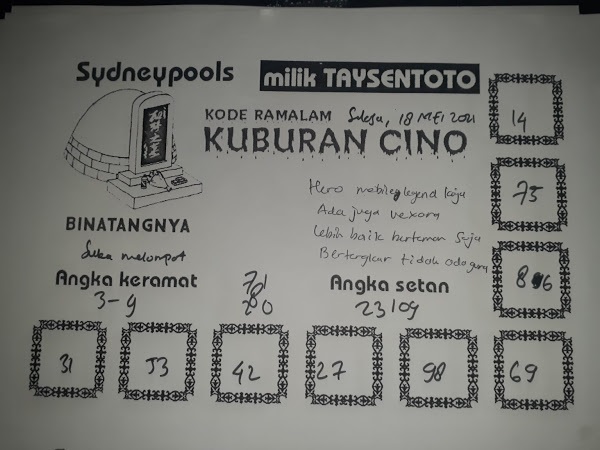 Sydneypools
milik TAYSENTOTO
14
KODE RAMALAM Selasa, 18 MEI 2021
KUBURAN CINO
75
Hero mobile legend kaja
Ada juga vexana
Lebih baik berteman Saja
Bertengkar tidak ada guna
BINATANGNYA
Suka melompat
Angka keramat
3-9
71
20
Angka setan
23109
31
53
42
27
98
69